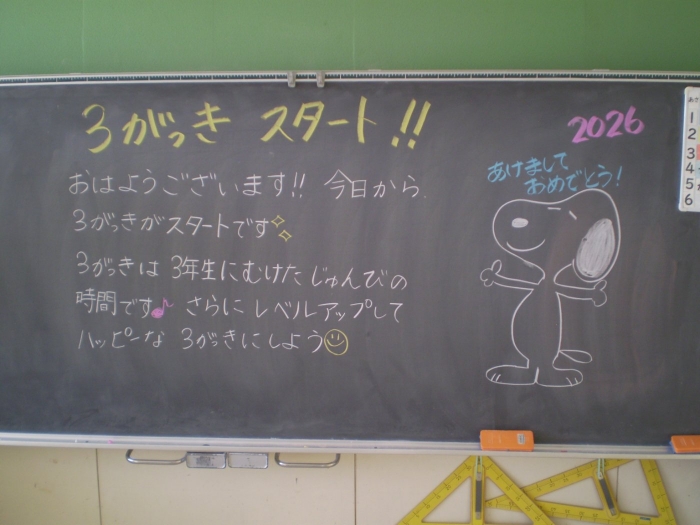 3がっき スタート!!
2026
あけまして
おめでとう!
おはようございます!! 今日から
3がっきがスタートです
3がっきは 3年生にむけたじゅんびの
時間です♪ さらにレベルアップして
ハッピーな 3がっきにしよう
1
2
3
4
5
6